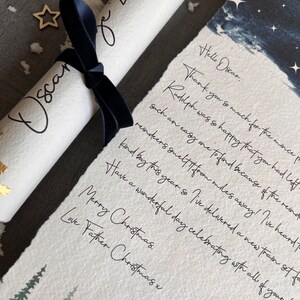 Oscar
Hello Oscar,
Thank you so much for the mince
Rudolph was so happy that you had left
such an easy one to find because of the
from miles away! I've heard
kind boy this year so I've delivered a new train set
Have a wonderful day celebrating with all of your
Merry Christmas,
Love Father Christmas x